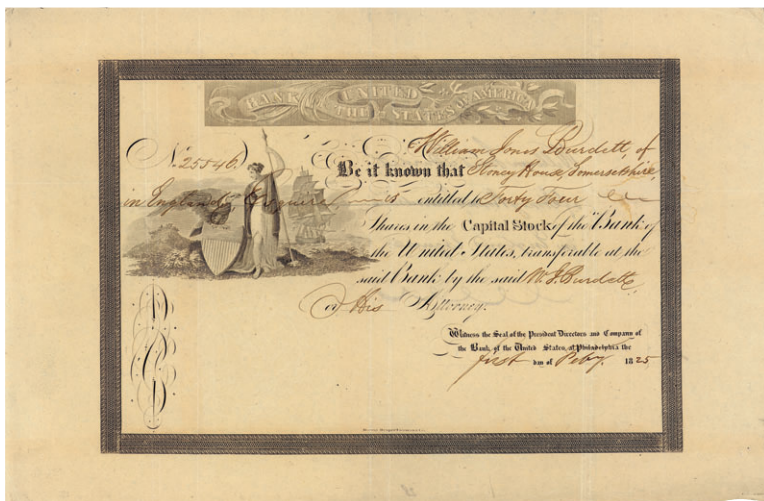 BANK OF THE UNITED STATES OF AMERICA
No. 25546.
William Jones Burdett, of
Be it known that Stoney House, Somersetshire,
in England, Esquire is entitled to Forty Four
Shares in the Capital Stock of the Bank of
the United States, transferable at the
said Bank by the said W. J. Burdett,
or His Attorney.
Witness the Seal of the President Directors and Company of
the Bank of the United States, at Philadelphia the
first day of Feby. 1825